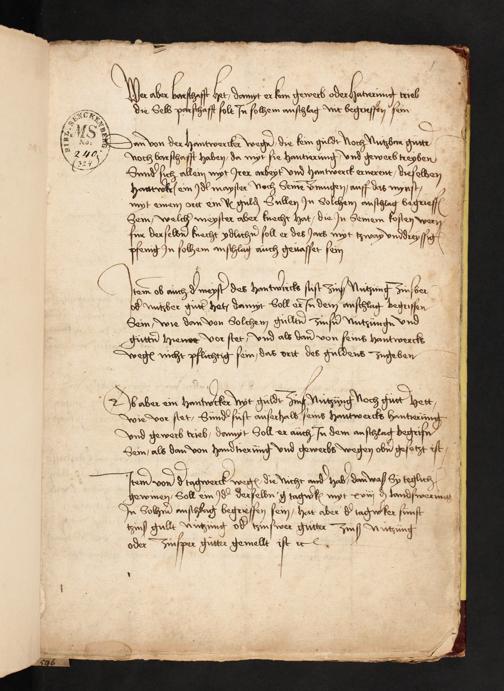 Wer aber barschafft het, damyt er kain gewerb oder hantirung trieb
die selb parschafft solt in solhem anschlag nit begriffen sein
BIBL. SENCKENBERG.
MS
No.
240.
Dan von der hantwercker wegen, die kein güldt noch nutzbar gutter
noch barschafft haben, da myt sie hantirung und gewerb treyben
sunder sich allein myt irer arbeyt und hantwerck ernerent, dieselben
ein maister nach seinem vermugen, auff das mynst,
myt einem ort eins guld sullen in solchem anschlag begriffen
sein, welch meyster aber knecht hat, die in seinem kosten wern
fur derselben knecht ydlichen soll er des Jars myt zway unddreyssig
pfenig in solhem anschlag auch gefasset sein
Item ob auch d meyster des hantwercks sust zinss nutzung zinsber
oder nutzber gut het, damyt soll er in dem anschlag begriffen
sein, wie dan von solchen gulten zinsen nutzungen und
guttern hievor vor stet, und als dan von seins hantwercks
wegen nicht pflichtig sein, das ort des guldens zugeben
Ob aber ein hantwercker nyt guldt zinss nutzung noch gutt hett,
wie vor stet, sunder sust ausserhalb seins hantwercks hantirung
und gewerb trib, damyt soll er auch in dem anschlag begriffen
sein, als dan von handtierung und gewerbs wegen oben gesetzt ist
Item von d tagwerck wegen, die nicht and hab, dan was sy teglich
gewinnen, soll ein Jder derselben tagwercker myt xviii d landswerung
In solhem anschlag begriffen sein, het aber der tagwercker sunst
zins gult nutzung oder zinsper gutter zinss nutzung
oder zinsper gutter gemellt ist etc